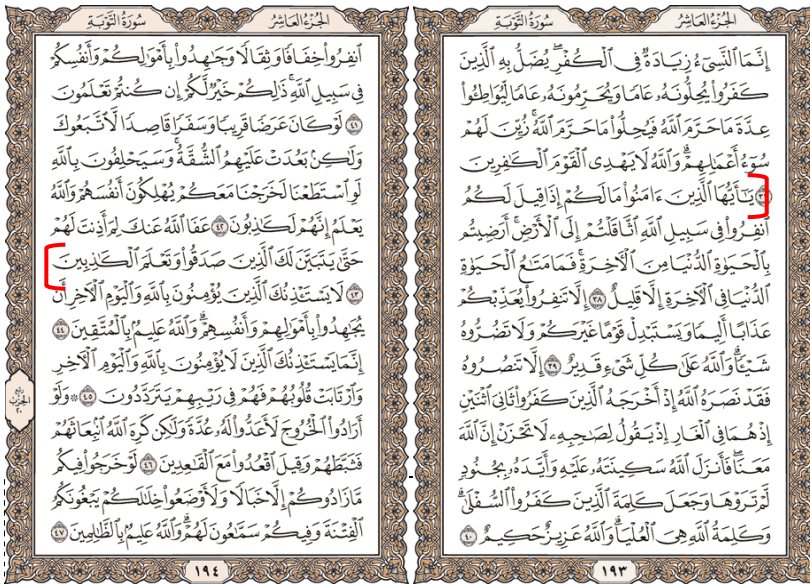 الجُزْءُ العَاشِرُ سُورَةُ التَّوْبَةِ
إِنَّمَا ٱلنَّسِيٓءُ زِيَادَةٞ فِي ٱلۡكُفۡرِۖ يُضَلُّ بِهِ ٱلَّذِينَ
كَفَرُواْ يُحِلُّونَهُۥ عَامٗا وَيُحَرِّمُونَهُۥ عَامٗا لِّيُوَاطِـُٔواْ
عِدَّةَ مَا حَرَّمَ ٱللَّهُ فَيُحِلُّواْ مَا حَرَّمَ ٱللَّهُۚ زُيِّنَ لَهُمۡ
سُوٓءُ أَعۡمَٰلِهِمۡۗ وَٱللَّهُ لَا يَهۡدِي ٱلۡقَوۡمَ ٱلۡكَٰفِرِينَ
٣٧ يَٰٓأَيُّهَا ٱلَّذِينَ ءَامَنُواْ مَا لَكُمۡ إِذَا قِيلَ لَكُمُ
ٱنفِرُواْ فِي سَبِيلِ ٱللَّهِ ٱثَّاقَلۡتُمۡ إِلَى ٱلۡأَرۡضِۚ أَرَضِيتُم
بِٱلۡحَيَوٰةِ ٱلدُّنۡيَا مِنَ ٱلۡأٓخِرَةِۚ فَمَا مَتَٰعُ ٱلۡحَيَوٰةِ
ٱلدُّنۡيَا فِي ٱلۡأٓخِرَةِ إِلَّا قَلِيلٌ ٣٨ إِلَّا تَنفِرُواْ يُعَذِّبۡكُمۡ
عَذَابًا أَلِيمٗا وَيَسۡتَبۡدِلۡ قَوۡمًا غَيۡرَكُمۡ وَلَا تَضُرُّوهُ
شَيۡـٔٗاۗ وَٱللَّهُ عَلَىٰ كُلِّ شَيۡءٖ قَدِيرٌ ٣٩ إِلَّا تَنصُرُوهُ
فَقَدۡ نَصَرَهُ ٱللَّهُ إِذۡ أَخۡرَجَهُ ٱلَّذِينَ كَفَرُواْ ثَانِيَ ٱثۡنَيۡنِ
إِذۡ هُمَا فِي ٱلۡغَارِ إِذۡ يَقُولُ لِصَٰحِبِهِۦ لَا تَحۡزَنۡ إِنَّ ٱللَّهَ
مَعَنَاۖ فَأَنزَلَ ٱللَّهُ سَكِينَتَهُۥ عَلَيۡهِ وَأَيَّدَهُۥ بِجُنُودٖ
لَّمۡ تَرَوۡهَا وَجَعَلَ كَلِمَةَ ٱلَّذِينَ كَفَرُواْ ٱلسُّفۡلَىٰۗ
وَكَلِمَةُ ٱللَّهِ هِيَ ٱلۡعُلۡيَاۗ وَٱللَّهُ عَزِيزٌ حَكِيمٌ ٤٠
١٩٣
الجُزْءُ العَاشِرُ سُورَةُ التَّوْبَةِ
ٱنفِرُواْ خِفَافٗا وَثِقَالٗا وَجَٰهِدُواْ بِأَمۡوَٰلِكُمۡ وَأَنفُسِكُمۡ
فِي سَبِيلِ ٱللَّهِۚ ذَٰلِكُمۡ خَيۡرٞ لَّكُمۡ إِن كُنتُمۡ تَعۡلَمُونَ
٤١ لَوۡ كَانَ عَرَضٗا قَرِيبٗا وَسَفَرٗا قَاصِدٗا لَّٱتَّبَعُوكَ
وَلَٰكِنۢ بَعُدَتۡ عَلَيۡهِمُ ٱلشُّقَّةُۚ وَسَيَحۡلِفُونَ بِٱللَّهِ
لَوِ ٱسۡتَطَعۡنَا لَخَرَجۡنَا مَعَكُمۡ يُهۡلِكُونَ أَنفُسَهُمۡ وَٱللَّهُ
يَعۡلَمُ إِنَّهُمۡ لَكَٰذِبُونَ ٤٢ عَفَا ٱللَّهُ عَنكَ لِمَ أَذِنتَ لَهُمۡ
حَتَّىٰ يَتَبَيَّنَ لَكَ ٱلَّذِينَ صَدَقُواْ وَتَعۡلَمَ ٱلۡكَٰذِبِينَ
٤٣ لَا يَسۡتَـٔۡذِنُكَ ٱلَّذِينَ يُؤۡمِنُونَ بِٱللَّهِ وَٱلۡيَوۡمِ ٱلۡأٓخِرِ أَن
يُجَٰهِدُواْ بِأَمۡوَٰلِهِمۡ وَأَنفُسِهِمۡۗ وَٱللَّهُ عَلِيمُۢ بِٱلۡمُتَّقِينَ ٤٤
إِنَّمَا يَسۡتَـٔۡذِنُكَ ٱلَّذِينَ لَا يُؤۡمِنُونَ بِٱللَّهِ وَٱلۡيَوۡمِ ٱلۡأٓخِرِ
وَٱرۡتَابَتۡ قُلُوبُهُمۡ فَهُمۡ فِي رَيۡبِهِمۡ يَتَرَدَّدُونَ ٤٥ ۞ وَلَوۡ
أَرَادُواْ ٱلۡخُرُوجَ لَأَعَدُّواْ لَهُۥ عُدَّةٗ وَلَٰكِن كَرِهَ ٱللَّهُ ٱنۢبِعَاثَهُمۡ
فَثَبَّطَهُمۡ وَقِيلَ ٱقۡعُدُواْ مَعَ ٱلۡقَٰعِدِينَ ٤٦ لَوۡ خَرَجُواْ فِيكُم
مَّا زَادُوكُمۡ إِلَّا خَبَالٗا وَلَأَوۡضَعُواْ خِلَٰلَكُمۡ يَبۡغُونَكُمُ
ٱلۡفِتۡنَةَ وَفِيكُمۡ سَمَّٰعُونَ لَهُمۡۗ وَٱللَّهُ عَلِيمُۢ بِٱلظَّٰلِمِينَ ٤٧
ربع
الحزب
٢٠
١٩٤